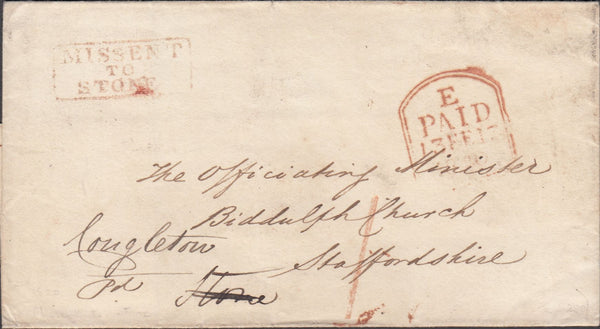 MISSENT
TO
STONE
E
PAID
The Officiating Minister
Biddulph Church
Staffordshire
Congleton
Pd
Stone